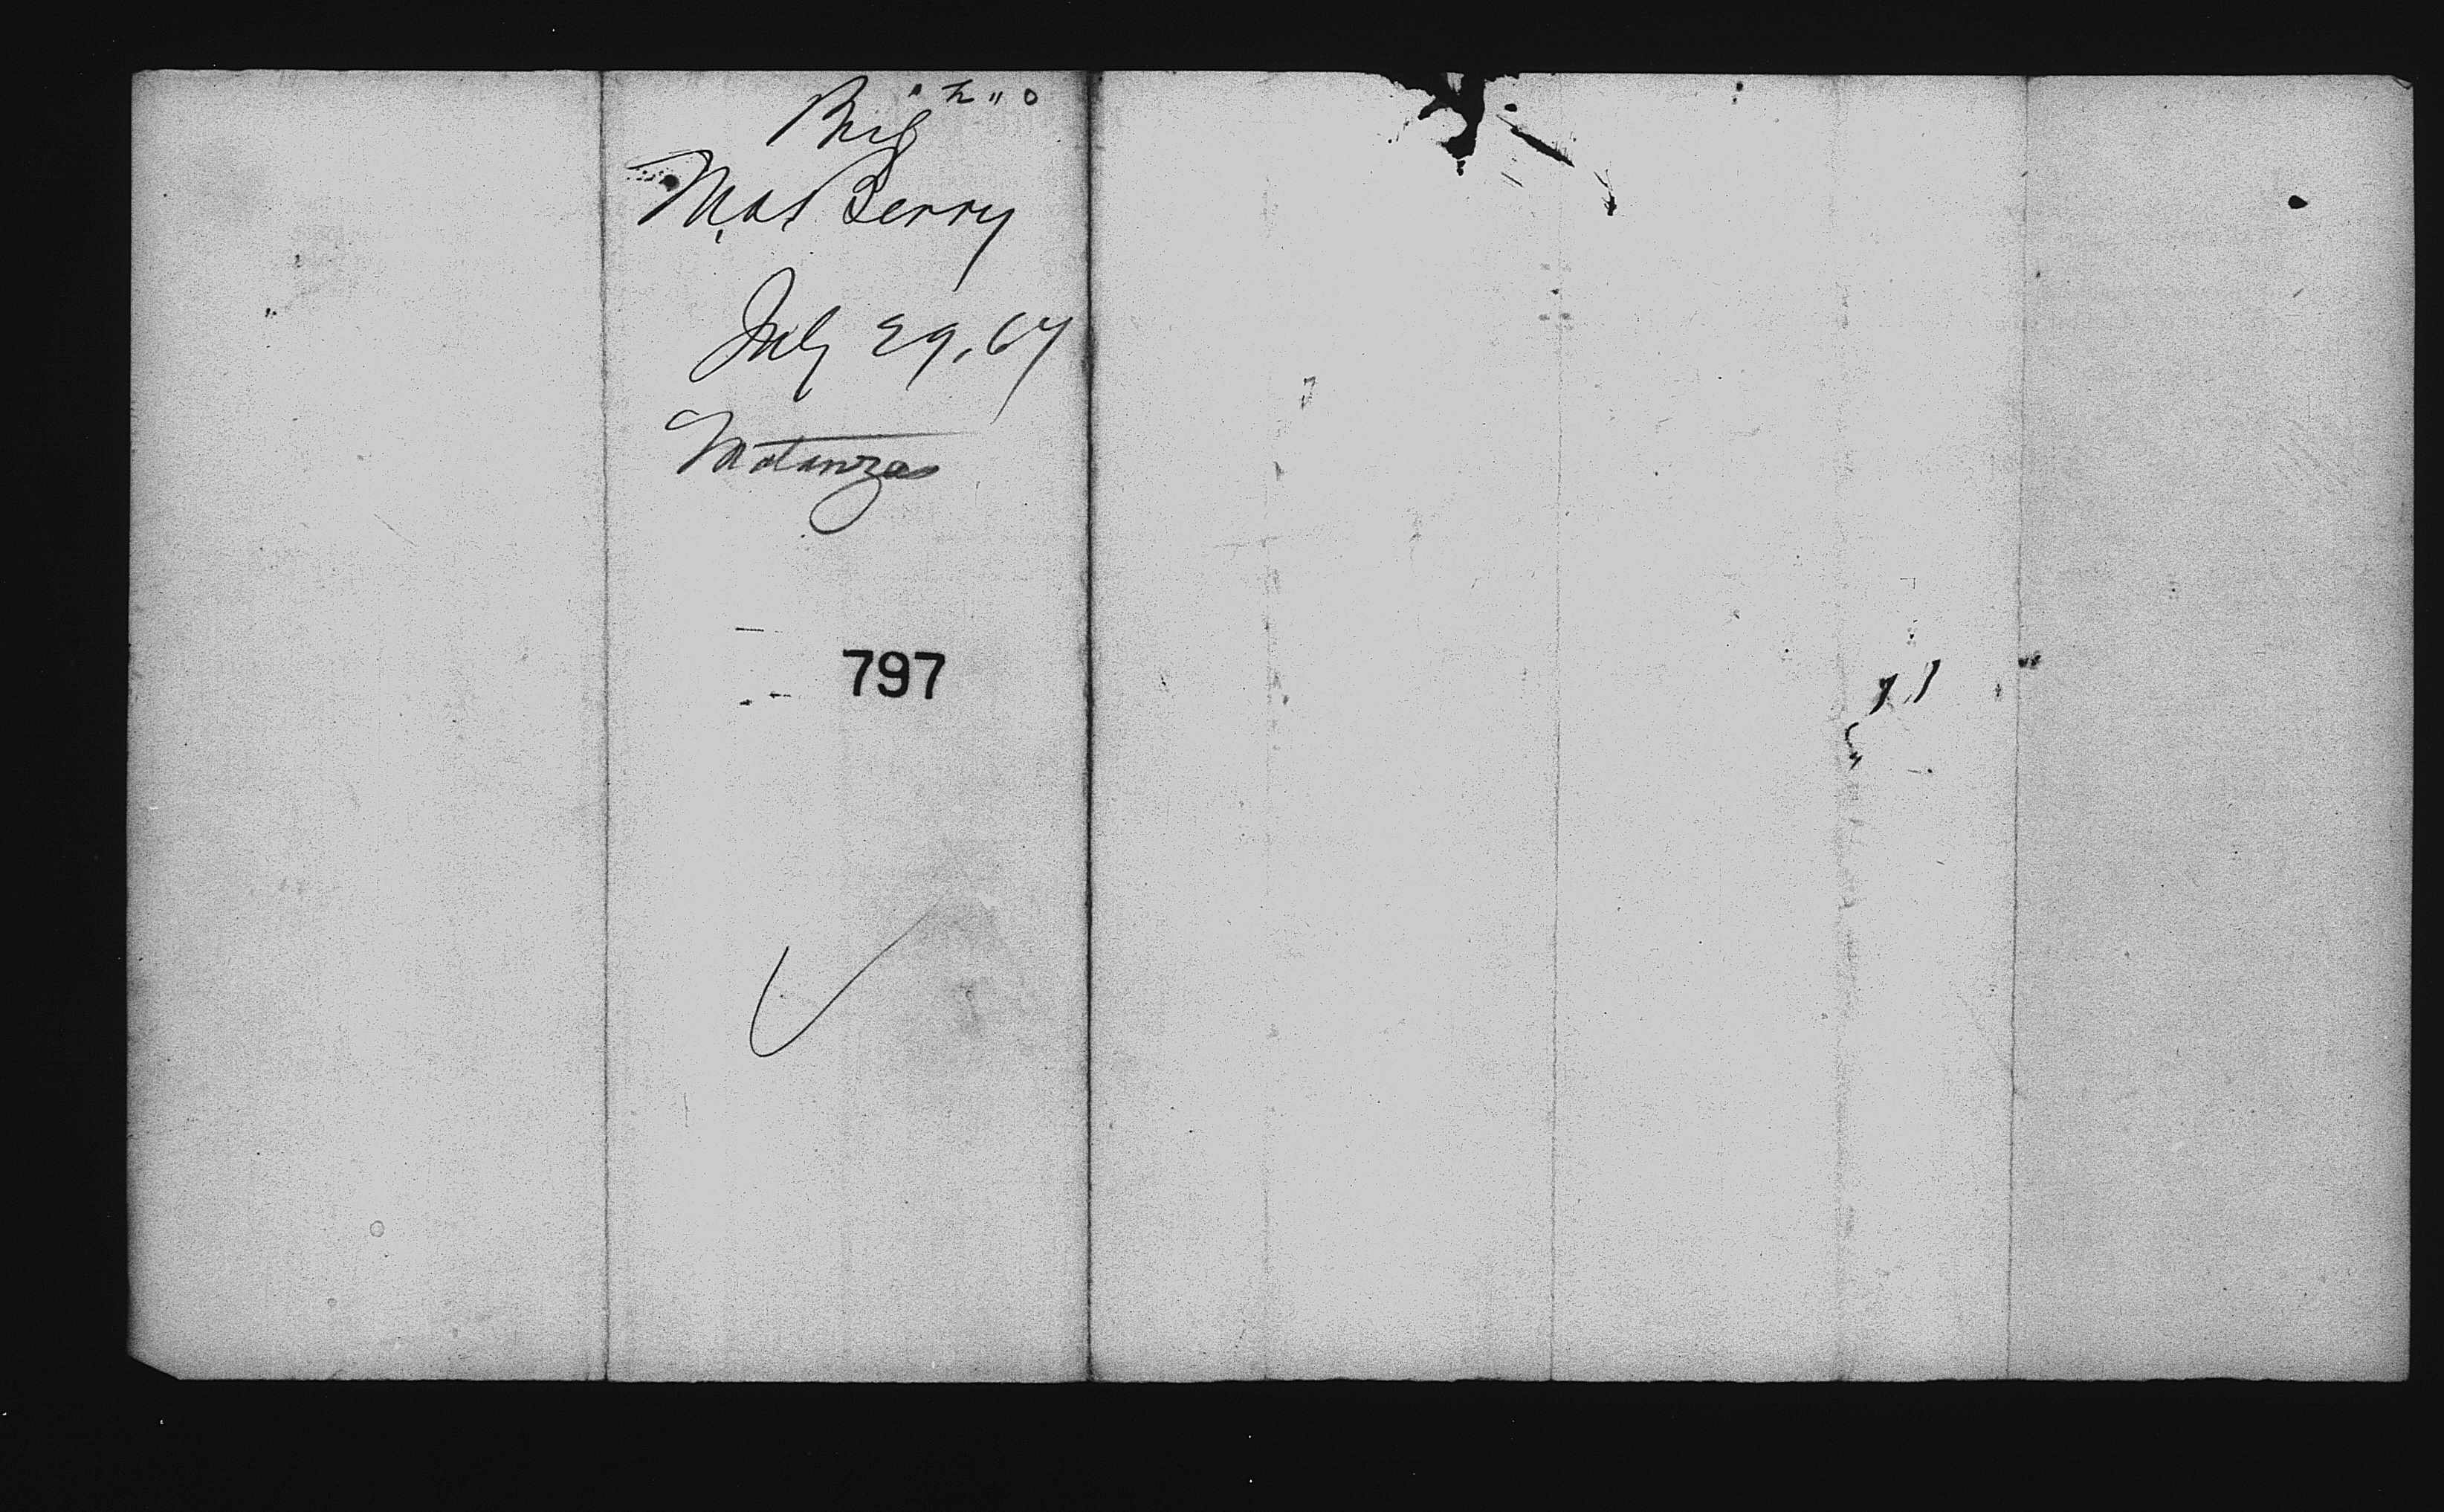 Brig
Mat Berry
July 29, 67
Matanzas
797